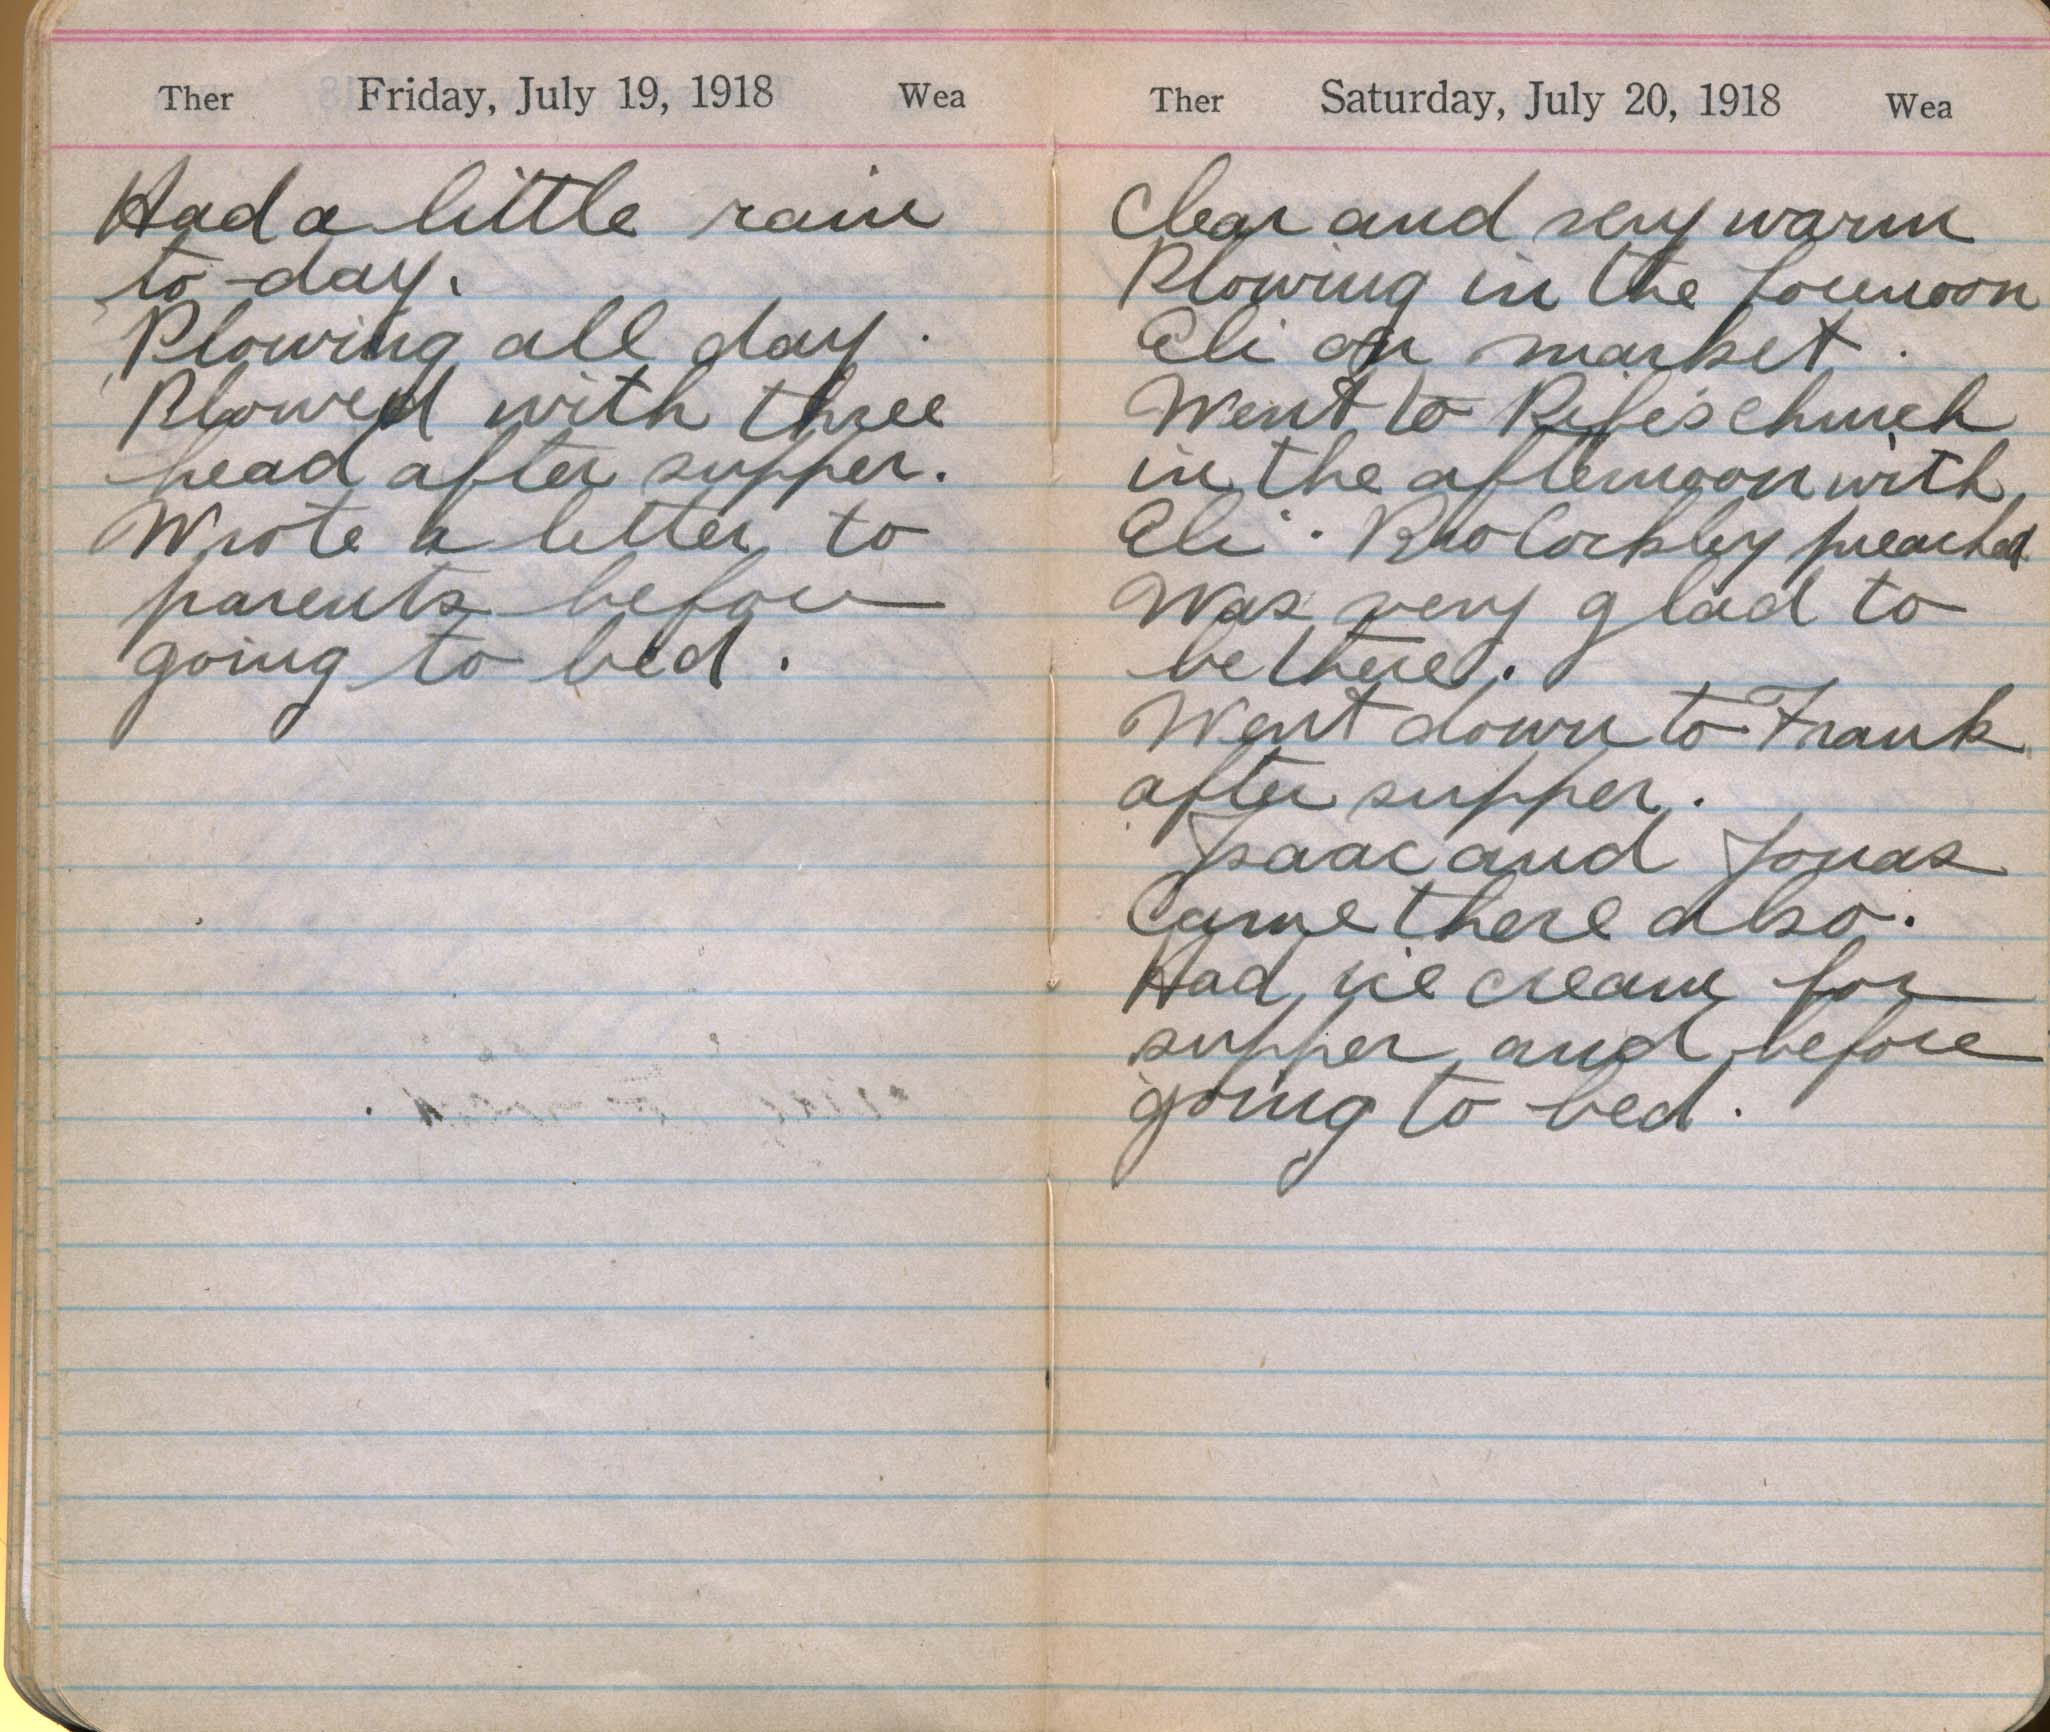 Ther Friday, July 19, 1918 Wea
Had a little rain
to-day.
Plowing all day.
Plowed with three
head after supper.
Wrote a letter to
parents before
going to bed.
Ther Saturday, July 20, 1918 Wea
Clear and very warm
Plowing in the forenoon
Eli on market.
Went to Rife's church
in the afternoon with
Eli. Bro preached
Was very glad to
be there.
Went down to Frank
after supper.
Isaac and Jonas
Came there also.
Had ice cream for
supper and before
going to bed.